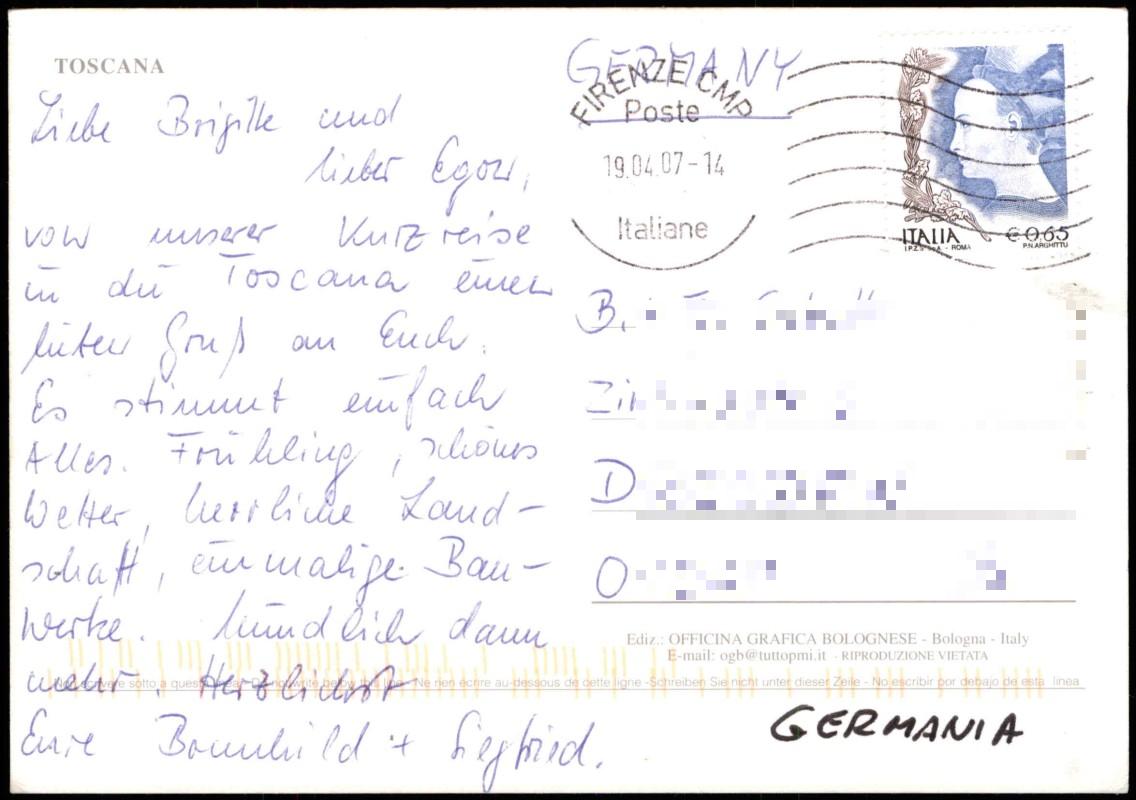 TOSCANA
Liebe Brigitte und
lieber Egon,
von unserer Kurzreise
in die Toscana einen
lieben Gruß an Euch.
Es stimmt einfach
Alles. Frühling, schönes
Wetter, herrliche Land-
schaft, einmalige Bau-
werke. Mündlich dann
mehr. Herzlichst
Eure Brunhild + Siegfried.
GERMANY
FIRENZE CMP
Poste
19.04.07-14
Italiane
ITALIA € 0,65
I.P.Z.S. S.p.A. - ROMA P.N. ARGHITTU
B.
Zi
D
O
Ediz.: OFFICINA GRAFICA BOLOGNESE - Bologna - Italy
E-mail: ogb@tuttopmi.it - RIPRODUZIONE VIETATA
sotto a questa Do not write below this line - Ne rien écrire au-dessous de cette ligne -Schreiben Sie nicht unter dieser Zeile - No escribir por debajo de esta linea
GERMANIA